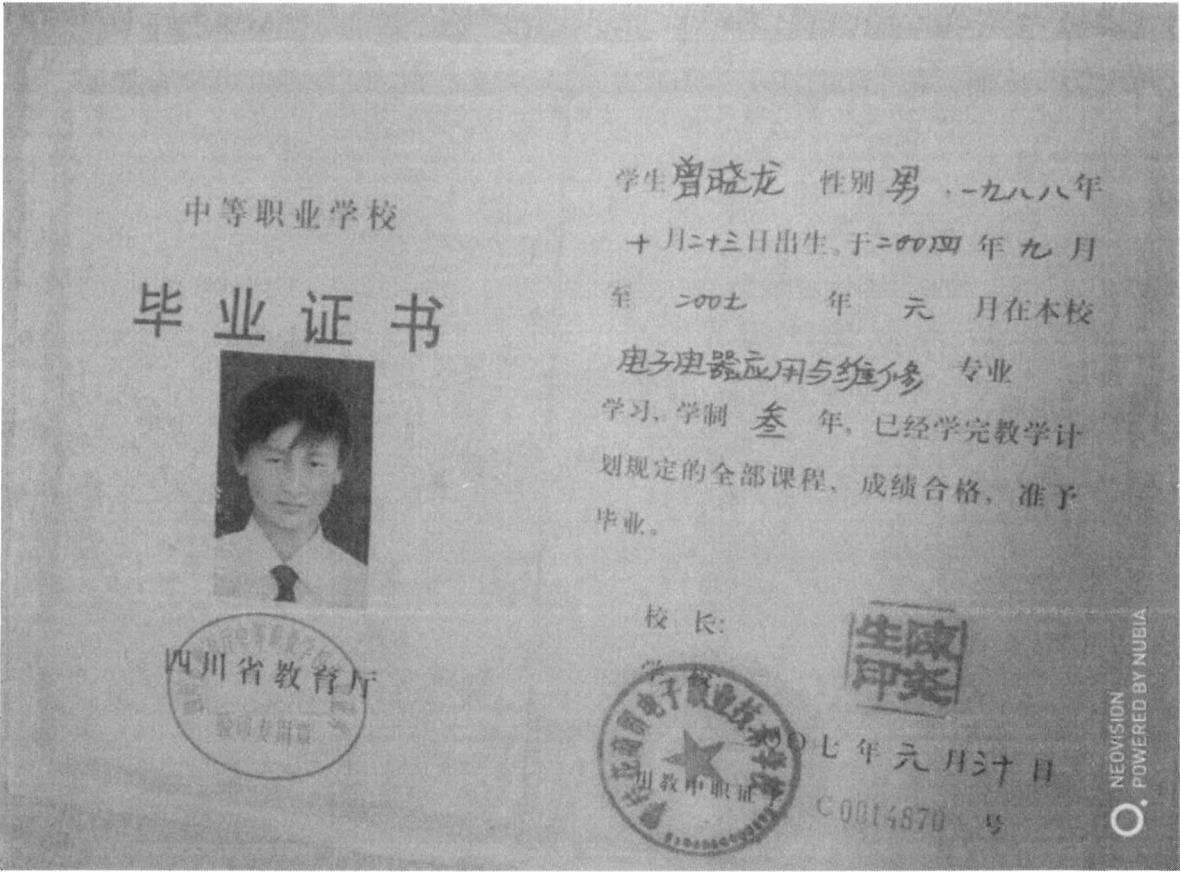 中等职业学校
毕业证书
四川省教育厅
验印专用章
学生曾晓龙 性别男，一九八八年
十月二十三日出生。于二00四年九月
至 二00七 年 元 月在本校
电子电器应用与维修 专业
学习、学制 叁 年，已经学完教学计
划规定的全部课程，成绩合格，准予
毕业。
校 长:
生印
学
电子职业技术学校
〇七年元月卅日
C0014870 号
NEOVISION
POWERED BY NUBIA